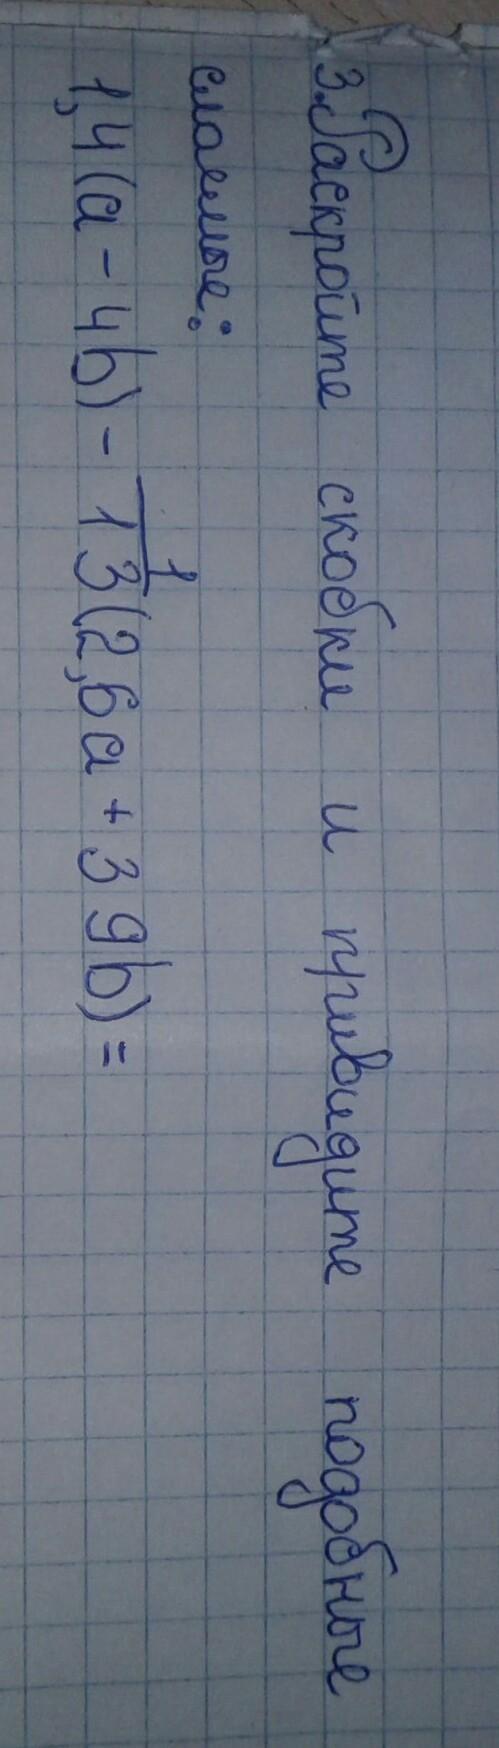 3. Раскройте скобки и привидите подобные
слаемые:
1,4(a - 4b) - 1/13(2,6a + 39b) =